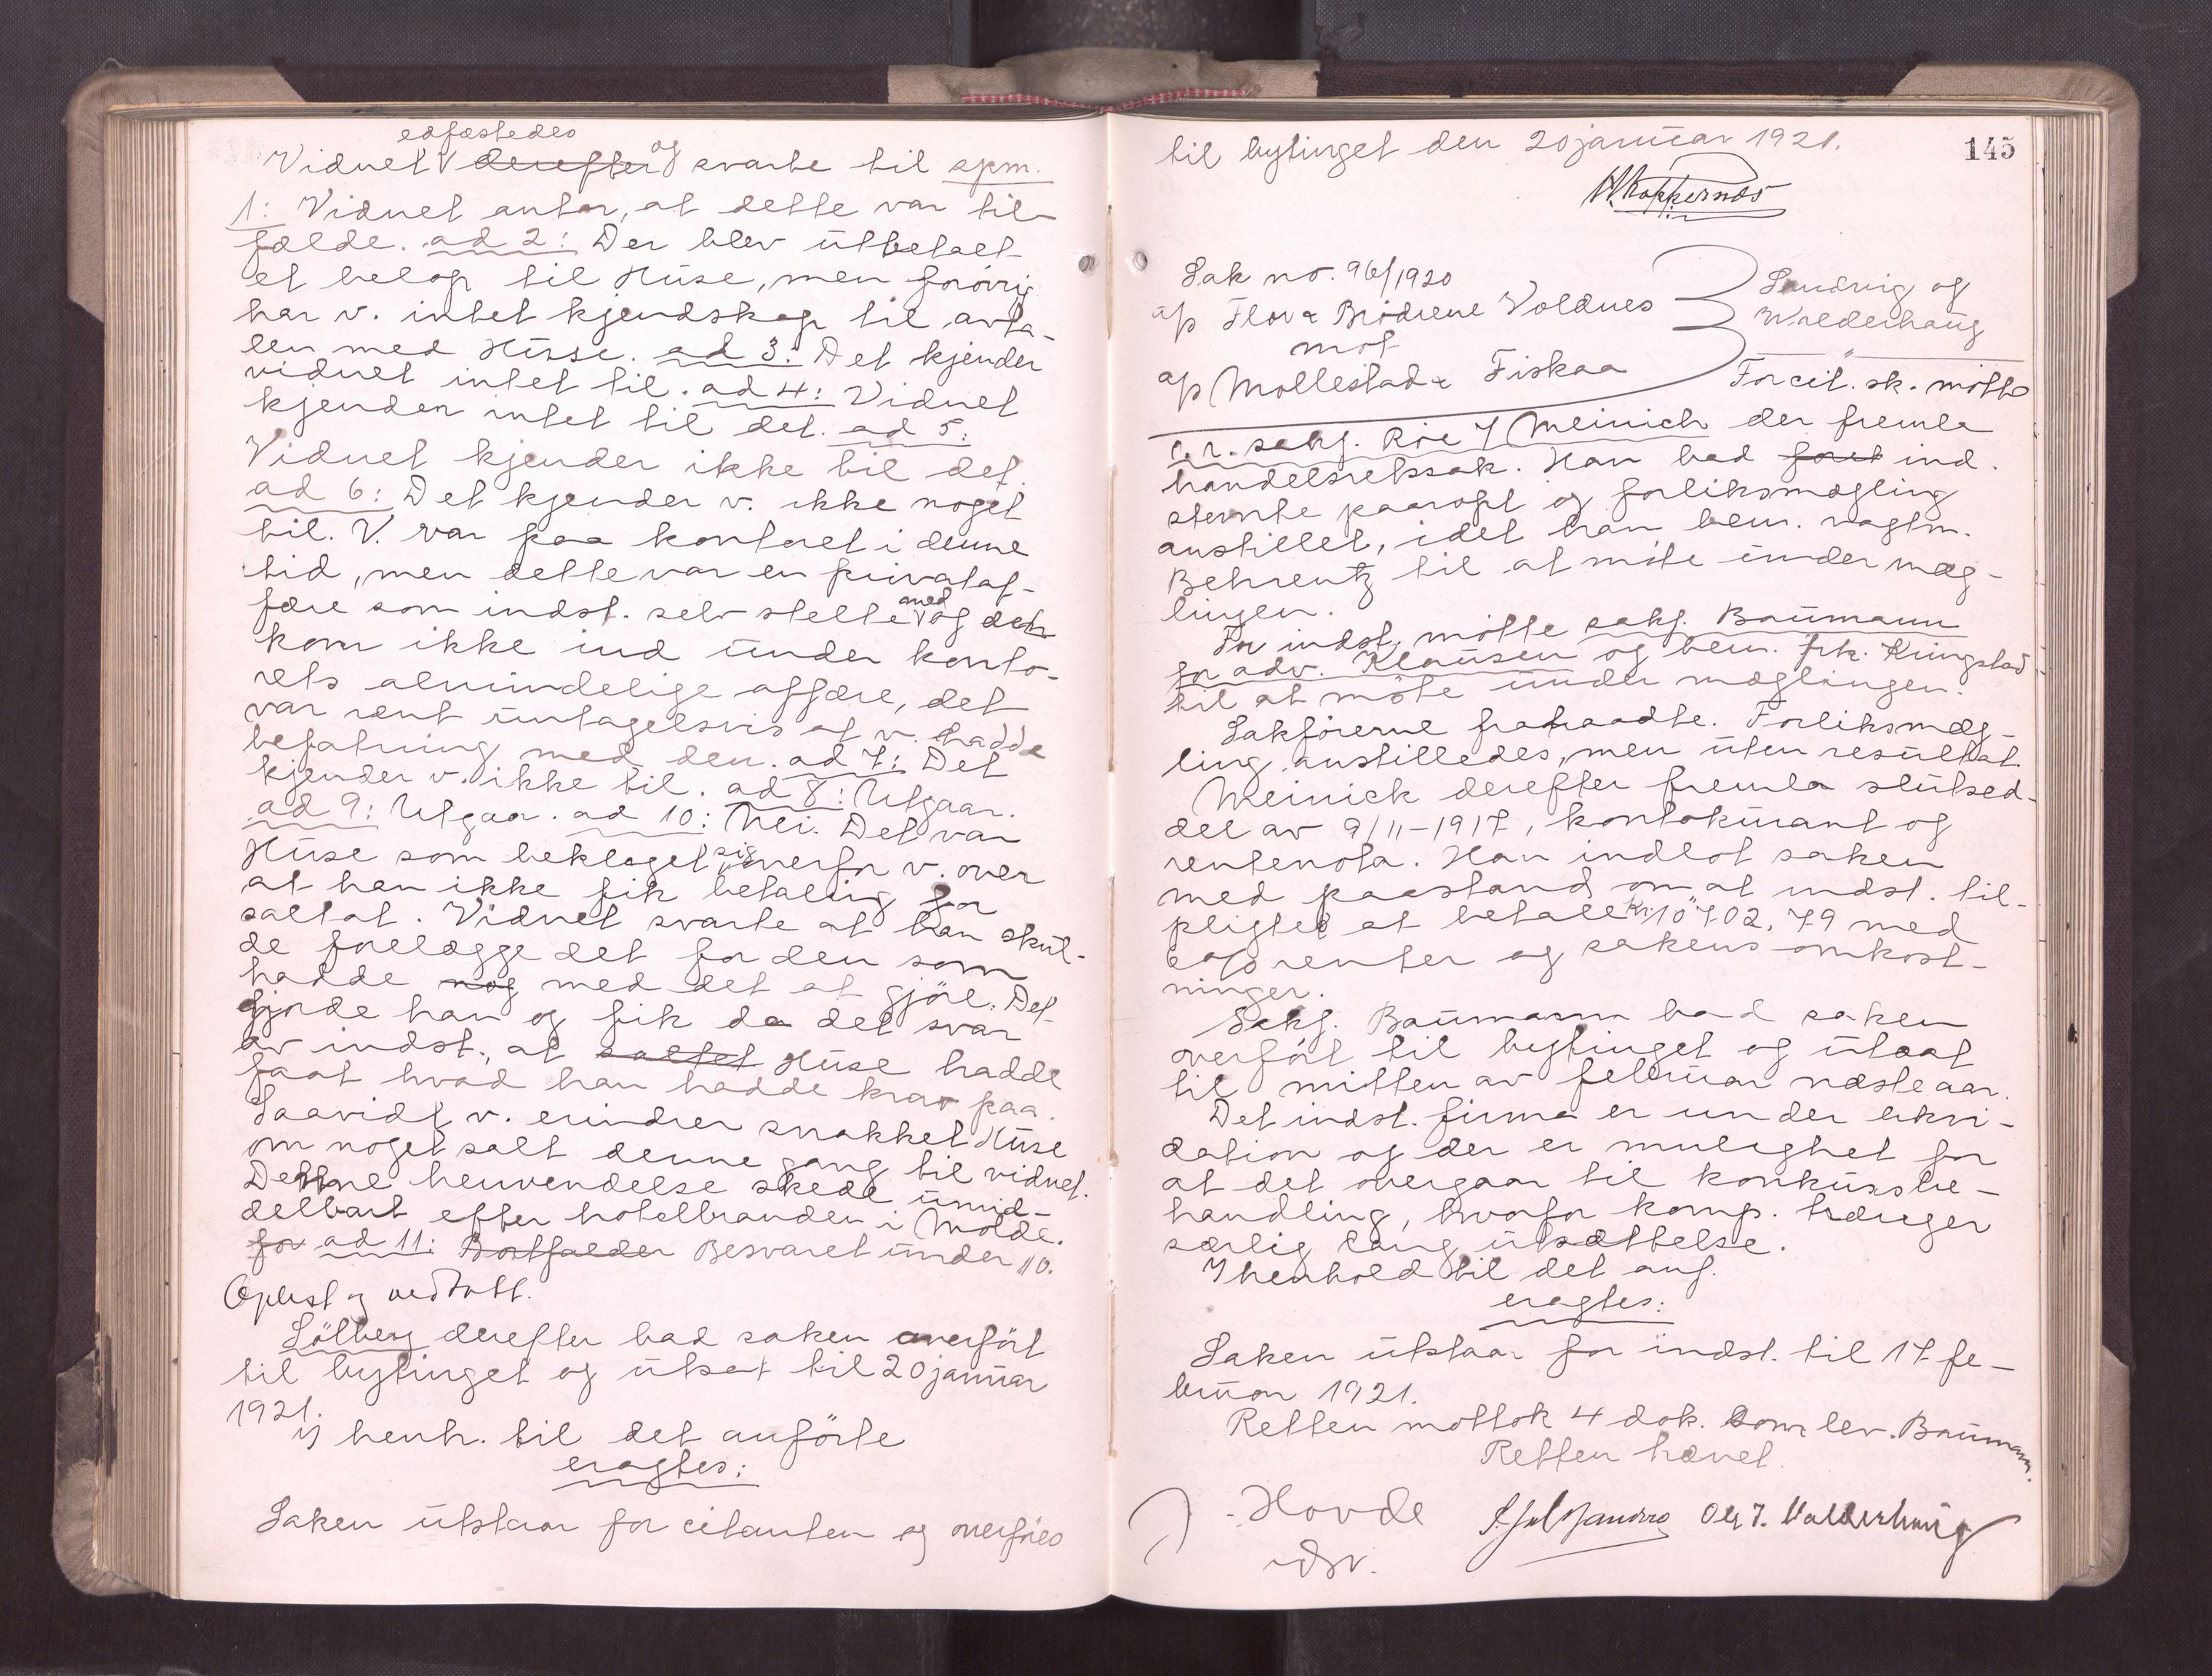 edfæstedes
Vidnet derefter og svarte til spm.
1: Vidnet antar, at dette var til-
fælde. ad 2: Der blev utbetalt
et beløp til Huse, men forøvrig
har v. intet kjendskap til avta-
len med Huse. ad 3: Det kjender
vidnet intet til. ad 4: Vidnet
kjender intet til det. ad 5:
Vidnet kjender ikke til det.
ad 6: Det kjender v. ikke noget
til. V. var paa kontoret i denne
tid, men dette var en privataf-
fære som indst. selv stelte med og den
kom ikke ind under konto-
rets almindelige affære, det
var rent untagelsvis at v. hadde
befatning med den. ad 7: Det
kjender v. ikke til. ad 8: Utgaar.
ad 9: Utgaar. ad 10: Nei. Det var
Huse som beklaget sig overfor v. over
at han ikke fik betaling for
saltat. Vidnet svarte at han skul-
de forelægge det for den som
hadde nog med det at gjöre. Det
gjorde han og fik da det svar
av indst., at saltet Huse hadde
faat hvad han hadde krav paa.
Saavidt v. erindrer snakket Huse
om noget salt denne gang til vidnet.
Denne henvendelse skede umid-
delbart efter hotelbranden i Molde.
for ad 11: Bortfalder Besvaret under 10.
Oplest og vedtatt.
Sölberg derefter bad saken overfört
til bytinget og utsat til 20 januar
1921.
I henh. til det anförte
eragtes:
Saken utstaar for citanten og overføres
145
til bytinget den 20 januar 1921.
Sak no. 96/1920
a/s Flor & Brödrene Voldnes
mot
a/s Mollestad & Fiskaa
Sandvig og
Walderhaug
For cit. sk. mötte
o.r. sakf. Roe I Meinich der fremla
handelsretssak. Han bad foret ind.
stevnte paaropt og forliksmægling
anstillet, idet han bem. vagtm.
Behrentz til at möte under mæg-
lingen.
For indst. mötte sakf. Baumann
for adv. Klausen og bem. frk. Kringstad
til at möte under mæglingen.
Sakförerne fratraadte. Forliksmæg-
ling anstilledes, men uten resultat.
Meinick derefter fremla slutsed-
del av 9/11-1917, kontokurant og
rentenota. Han indlot saken
med paastand om at indst. til-
pligtes at betale kr. 10702,79 med
6% renter og sakens omkost-
ninger.
Sakf. Baumann bad saken
overfört til bytinget og utsat
til mitten av februar næste aar.
Det indst. firma er under likvi-
dation og der er mulighet for
at det overgaar til konkursbe-
handling, hvorfor komp. trænger
særlig lang utsættelse.
I henhold til det anf.
eragtes:
Saken utstaar for indst. til 17 fe-
bruar 1921.
Retten mottok 4 dok. som lev. Baumann.
Retten hævet.
Hovde
Ole J. Valderhaug